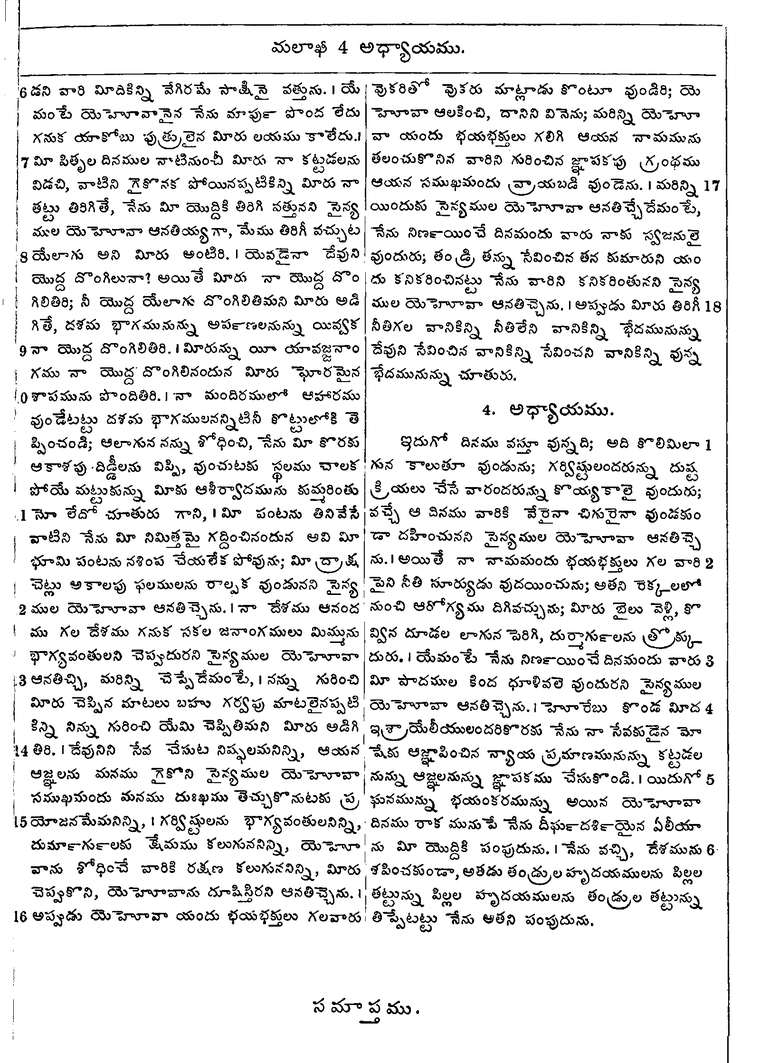 మలాఖీ 4 అధ్యాయము.
6 డని వారి మీదికిన్ని వేగిరమే సాక్షినై వత్తును. । యే
మంటే యెహోవానైన నేను మార్పు పొంద లేదు
గనుక యాకోబు పుత్రులైన మీరు లయము కాలేదు. ।
7 మీ పితృల దినముల నాటినుంచీ మీరు నా కట్టడలను
విడచి, వాటిని గైకొనక పోయినప్పటికిన్ని మీరు నా
తట్టు తిరిగితే, నేను మీ యొద్దికి తిరిగి వత్తునని సైన్య
ముల యెహోవా ఆనతియ్యగా, మేము తిరిగీ వచ్చుట
8 యేలాగు అని మీరు అంటిరి. । యెవడైనా దేవుని
యొద్ద దొంగిలునా? అయితే మీరు నా యొద్ద దొం
గిలితిరి; నీ యొద్ద యేలాగు దొంగిలితిమని మీరు అడి
గితే, దశమ భాగమునున్ను అర్పణలనున్ను యివ్వక
9 నా యొద్ద దొంగిలితిరి. । మీరున్ను యీ యావజ్జనాం
గము నా యొద్ద దొంగిలినందున మీరు ఘోరమైన
0 శాపమును పొందితిరి. । నా మందిరములో ఆహారము
వుండేటట్టు దశమ భాగములనన్నిటినీ కొట్టులోకి తె
ప్పించండి; ఆలాగున నన్ను శోధించి, నేను మీ కొరకు
ఆకాశపు దిడ్డీలను విప్పి, వుంచుటకు స్థలము చాలక
పోయే మట్టుకున్ను మీకు ఆశీర్వాదమును కుమ్మరింతు
1 నో లేదో చూతురు గాని, । మీ పంటను తినివేసే
వాటిని నేను మీ నిమిత్తమై గద్దించినందున అవి మీ
భూమి పంటను నశింప చేయలేక పోవును; మీ ద్రాక్ష
చెట్లు అకాలపు ఫలములను రాల్పక వుండునని సైన్య
2 ముల యెహోవా ఆనతిచ్చెను. । నా దేశము ఆనంద
ము గల దేశము గనుక సకల జనాంగములు మిమ్మును
భాగ్యవంతులని చెప్పుదురని సైన్యముల యెహోవా
13 ఆనతిచ్చి, మరిన్ని చెప్పేదేమంటే, । నన్ను గురించి
మీరు చెప్పిన మాటలు బహు గర్వపు మాటలైనప్పటి
కిన్ని నిన్ను గురించి యేమి చెప్పితిమని మీరు అడిగి
14 తిరి. । దేవునిని సేవ చేసుట నిష్ఫలమనిన్ని, ఆయన
ఆజ్ఞలను మనము గైకొని సైన్యముల యెహోవా
సముఖమందు మనము దుఃఖము తెచ్చుకొనుటకు ప్ర
15 యోజనమేమనిన్ని, । గర్విష్టులను భాగ్యవంతులనిన్ని,
దుర్మార్గులకు క్షేమము కలుగుననిన్ని, యెహో
వాను శోధించే వారికి రక్షణ కలుగుననిన్ని, మీరు
చెప్పుకొని, యెహోవాను దూషిస్తిరని ఆనతిచ్చెను. ।
16 అప్పుడు యెహోవా యందు భయభక్తులు గలవారు
వొకరితో వొకరు మాట్లాడు కొంటూ వుండిరి; యె
హోవా ఆలకించి, దానిని వినెను; మరిన్ని యెహో
వా యందు భయభక్తులు గలిగి ఆయన నామమును
తలంచుకొనిన వారిని గురించిన జ్ఞాపకపు గ్రంథము
ఆయన సముఖమందు వ్రాయబడి వుండెను. । మరిన్ని 17
యిందుకు సైన్యముల యెహోవా ఆనతిచ్చేదేమంటే,
నేను నిర్ణయించే దినమందు వారు నాకు స్వజనులై
వుందురు; తండ్రి తన్ను సేవించిన తన కుమారుని యం
దు కనికరించినట్టు నేను వారిని కనికరింతునని సైన్య
ముల యెహోవా ఆనతిచ్చెను. । అప్పుడు మీరు తిరిగీ 18
నీతిగల వానికిన్ని నీతిలేని వానికిన్ని భేదమునున్ను
దేవుని సేవించిన వానికిన్ని సేవించని వానికిన్ని వున్న
భేదమునున్ను చూతురు.
4. అధ్యాయము.
ఇదుగో దినము వస్తూ వున్నది; అది కొలిమిలా 1
గున కాలుతూ వుండును; గర్విష్టులందరున్ను దుష్ట
క్రియలు చేసే వారందరున్ను కొయ్యకాలై వుందురు;
వచ్చే ఆ దినము వారికి వేరైనా చిగురైనా వుండకుం
డా దహించునని సైన్యముల యెహోవా ఆనతిచ్చె
ను. । అయితే నా నామమందు భయభక్తులు గల వారి 2
పైని నీతి సూర్యుడు వుదయించును; అతని రెక్కలలో
నుంచి ఆరోగ్యము దిగివచ్చును; మీరు బైలు వెళ్లి, కొ
వ్విన దూడల లాగున పెరిగి, దుర్మార్గులను త్రొక్కు
దురు. । యేమంటే నేను నిర్ణయించే దినమందు వారు 3
మీ పాదముల కింద ధూళివలె వుందురని సైన్యముల
యెహోవా ఆనతిచ్చెను. । హోరేబు కొండ మీద 4
ఇశ్రాయేలీయులందరికొరకు నేను నా సేవకుడైన మో
షేకు ఆజ్ఞాపించిన న్యాయ ప్రమాణమునున్ను కట్టడల
నున్ను ఆజ్ఞలనున్ను జ్ఞాపకము చేసుకొండి. । యిదుగో 5
ఘనమున్ను భయంకరమున్ను అయిన యెహోవా
దినము రాక మునుపే నేను దీర్ఘదర్శియైన ఏలీయా
ను మీ యొద్దికి పంపుదును. । నేను వచ్చి, దేశమును 6
శపించకుండా, అతడు తండ్రుల హృదయములను పిల్లల
తట్టున్ను పిల్లల హృదయములను తండ్రుల తట్టున్ను
తిప్పేటట్టు నేను అతని పంపుదును.
సమాప్తము.